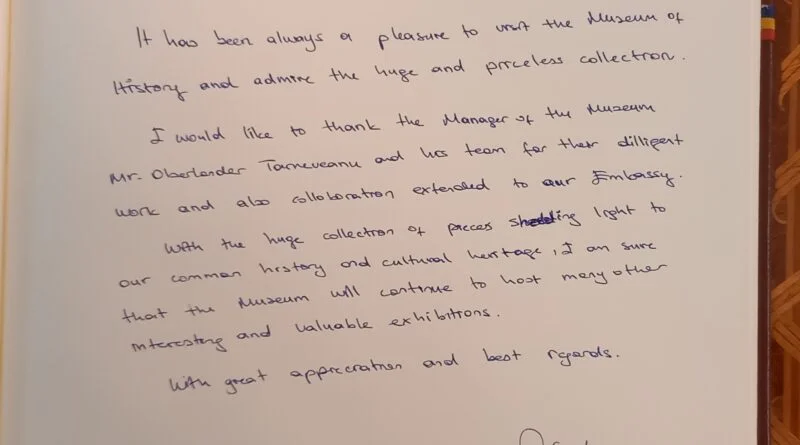 It has been always a pleasure to visit the Museum of
History and admire the huge and priceless collection.
I would like to thank the Manager of the Museum
Mr. Oberlander Tarneveanu and his team for their dilligent
work and also colloboration extended to our Embassy.
With the huge collection of pieces shedding light to
our common history and cultural heritage, I am sure
that the Museum will continue to host many other
interesting and valuable exhibitions.
With great appreciation and best regards.